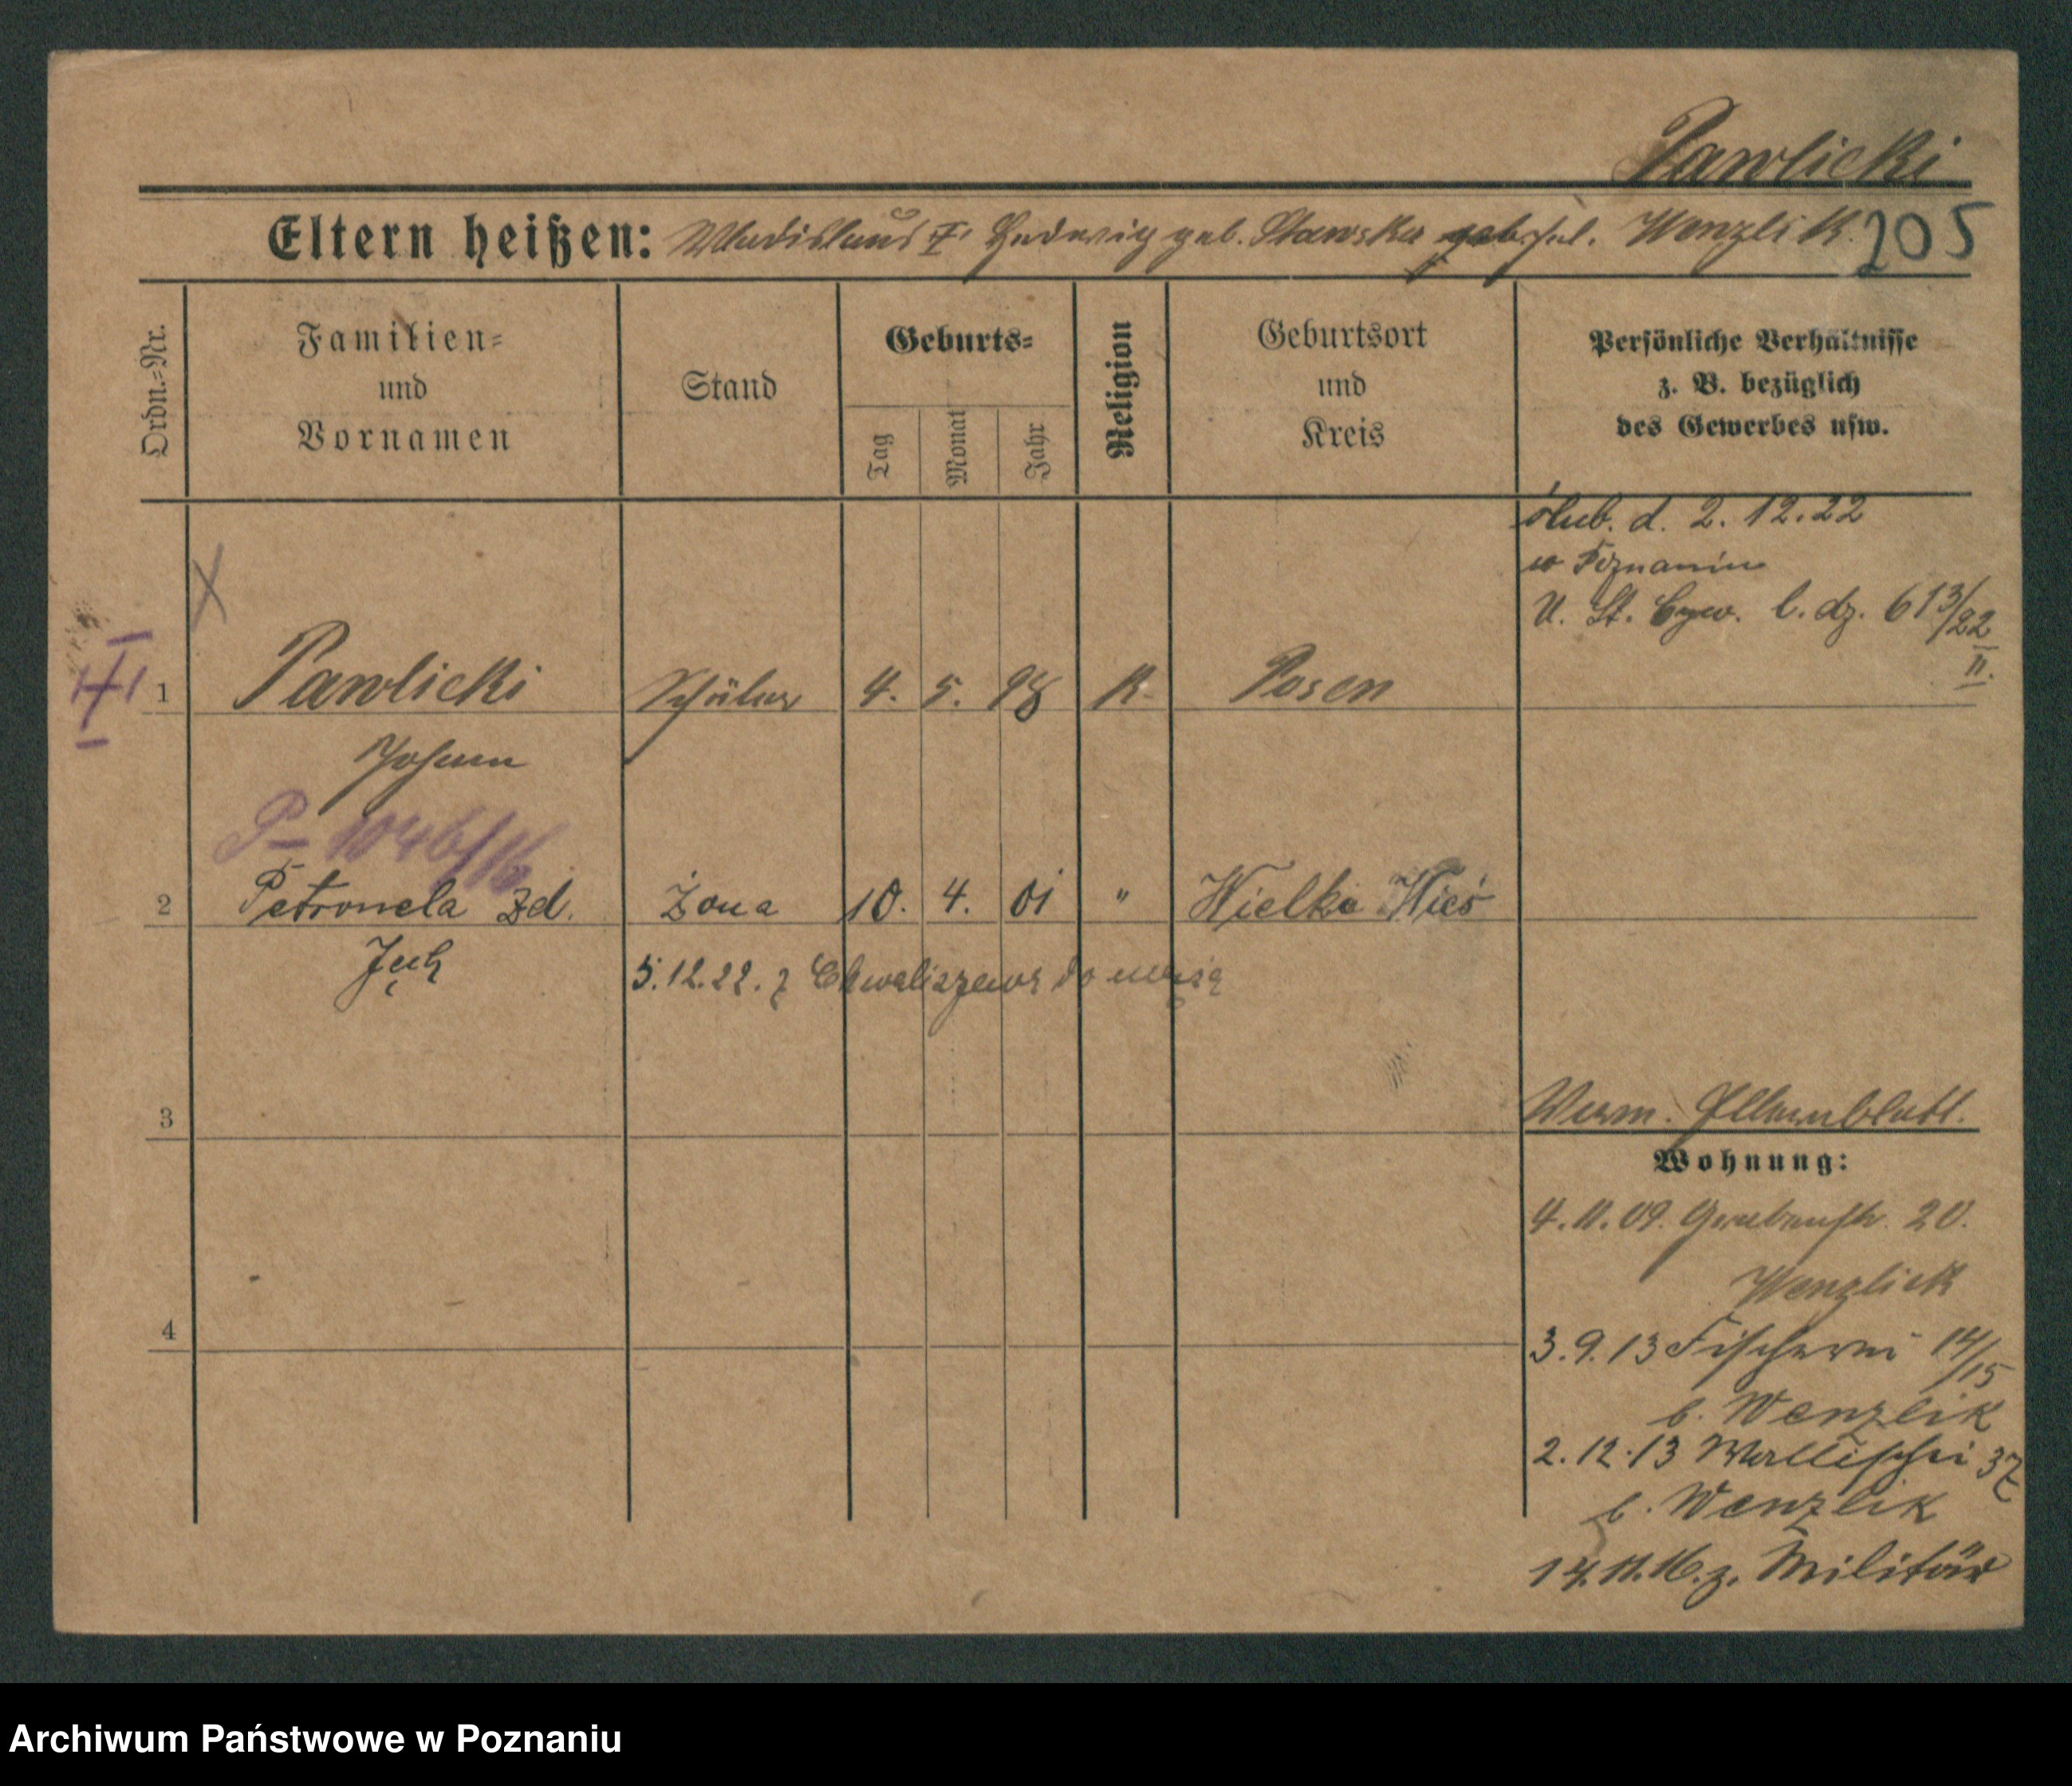 Pawlicki
Eltern heißen: Wladislaus † Hedwig geb. Stawska gesch. Wenzlik. 205
Ordn.-Nr.
Familien-
und
Vornamen
Stand
Geburts-
Tag
Monat
Jahr
Religion
Geburtsort
und
Kreis
Persönliche Verhältnisse
z. B. bezüglich
des Gewerbes usw.
ślub. d. 2.12.22
w Poznaniu
U. St. Cyw. l. dz. 613/22
II.
1 Pawlicki Schüler 4. 5. 98 K. Posen
Johann
P- 1046/16
2 Petronela zd. żona 10. 4. 01 " Wielka Wieś
5.12.22. z Chwaliszewa do męża
3
Wohnung:
4.11.09. Grabenstr. 20.
Wenzlick
4
3.9.13 Fischerei 14/15
b. Wenzlik
2.12.13 Wallischei 37
b. Wenzlik
14.11.16. z. Militär
Archiwum Państwowe w Poznaniu